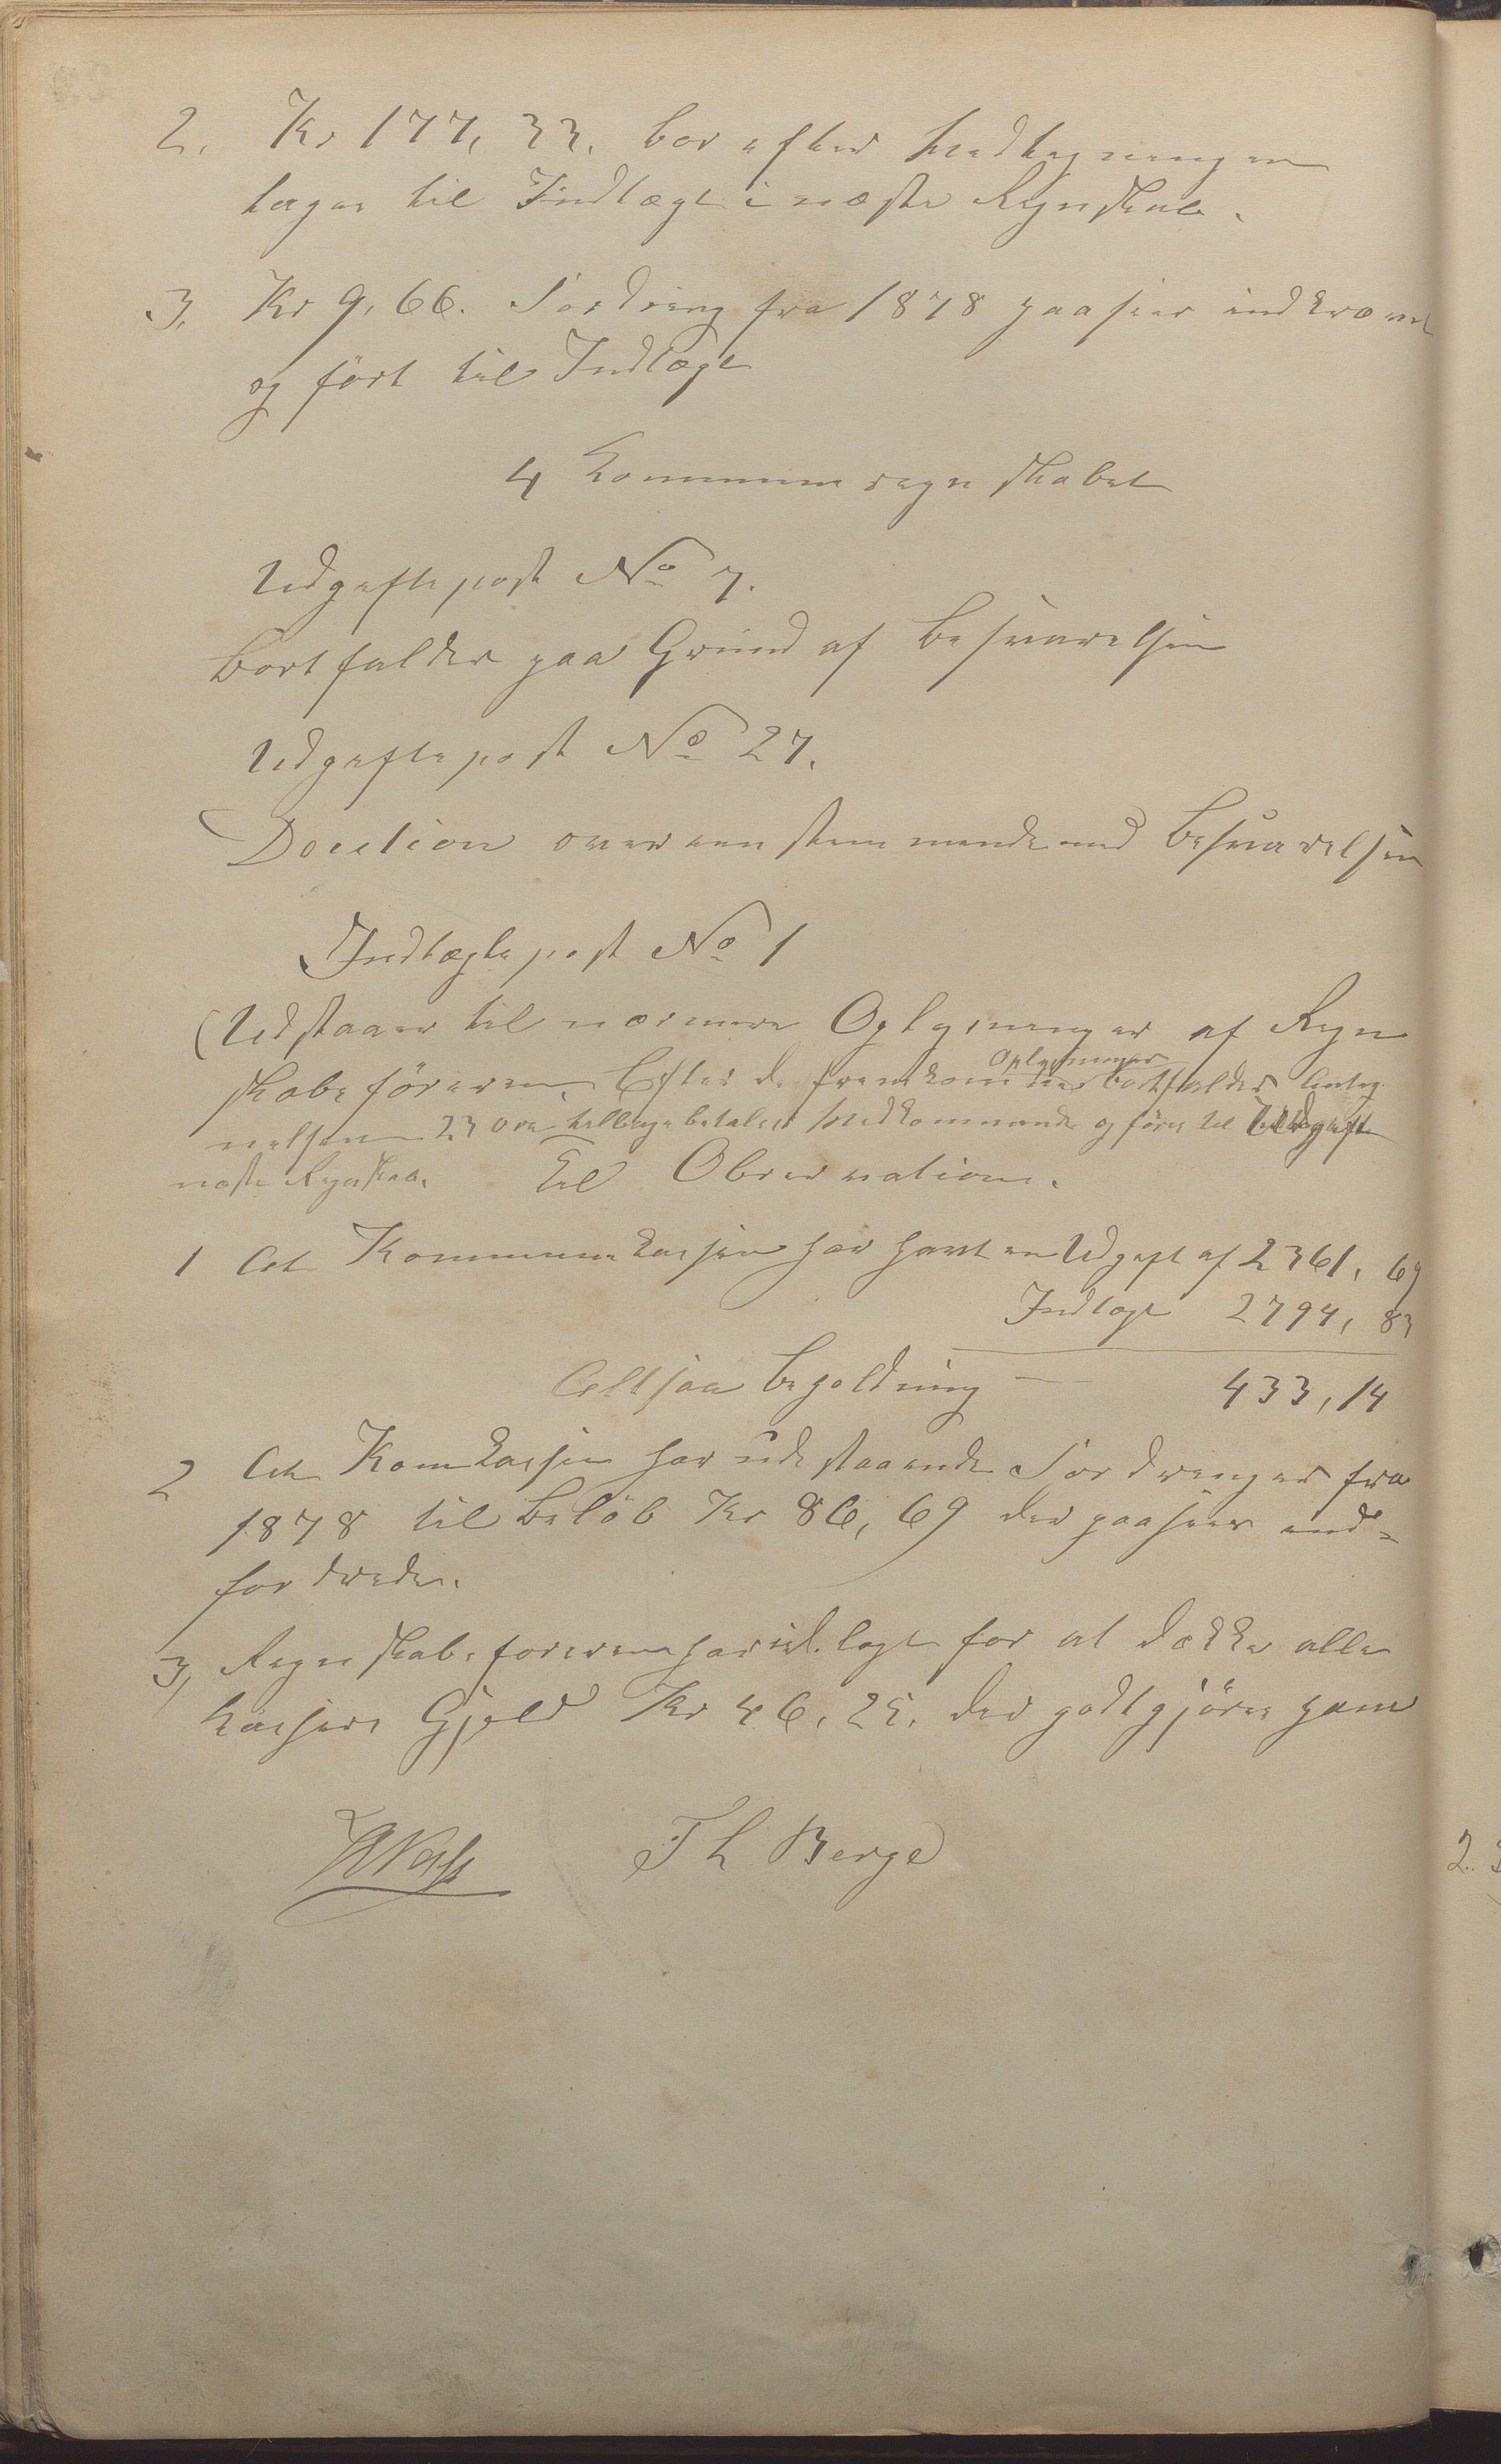 2. Kr 177,33. bør efter Vedtegningen
tages til Indtægt i næste Regnskab.
3. Kr 9,66. Fordring fra 1878 paasees indkrævet
og ført til Indtægt
4 Kommuneregnskabet
Udgiftspost No 7.
Bortfalder paa Grund af Besvarelsen
Udgiftspost No 27.
Decition overeensstemmende med Besvarelsen
Indtægtspost No 1
(Udstaaer til nærmere Oplysninger af Regn
skabsføreren. Efter de fremkomne Oplysninger bortfalder Anteg
nelsen 23 Øre tilbagebetales Vedkommende og føres til Udgift
næste Regnskab. Til Observation.
1 At Kommunekassen har havt en Udgift af 2361,69
Indtægt 2794,83
Altsaa Beholdning — 433,14
2 At Komkassen har udestaaende Fordringer fra
1878 til Beløb Kr 86,69 der paasees ind-
fordrede.
3, Regnskabsføreren har udlagt for at dække alle
Kassens Gjeld Kr 46,25. der godtgjøres ham
Th Berge
2.